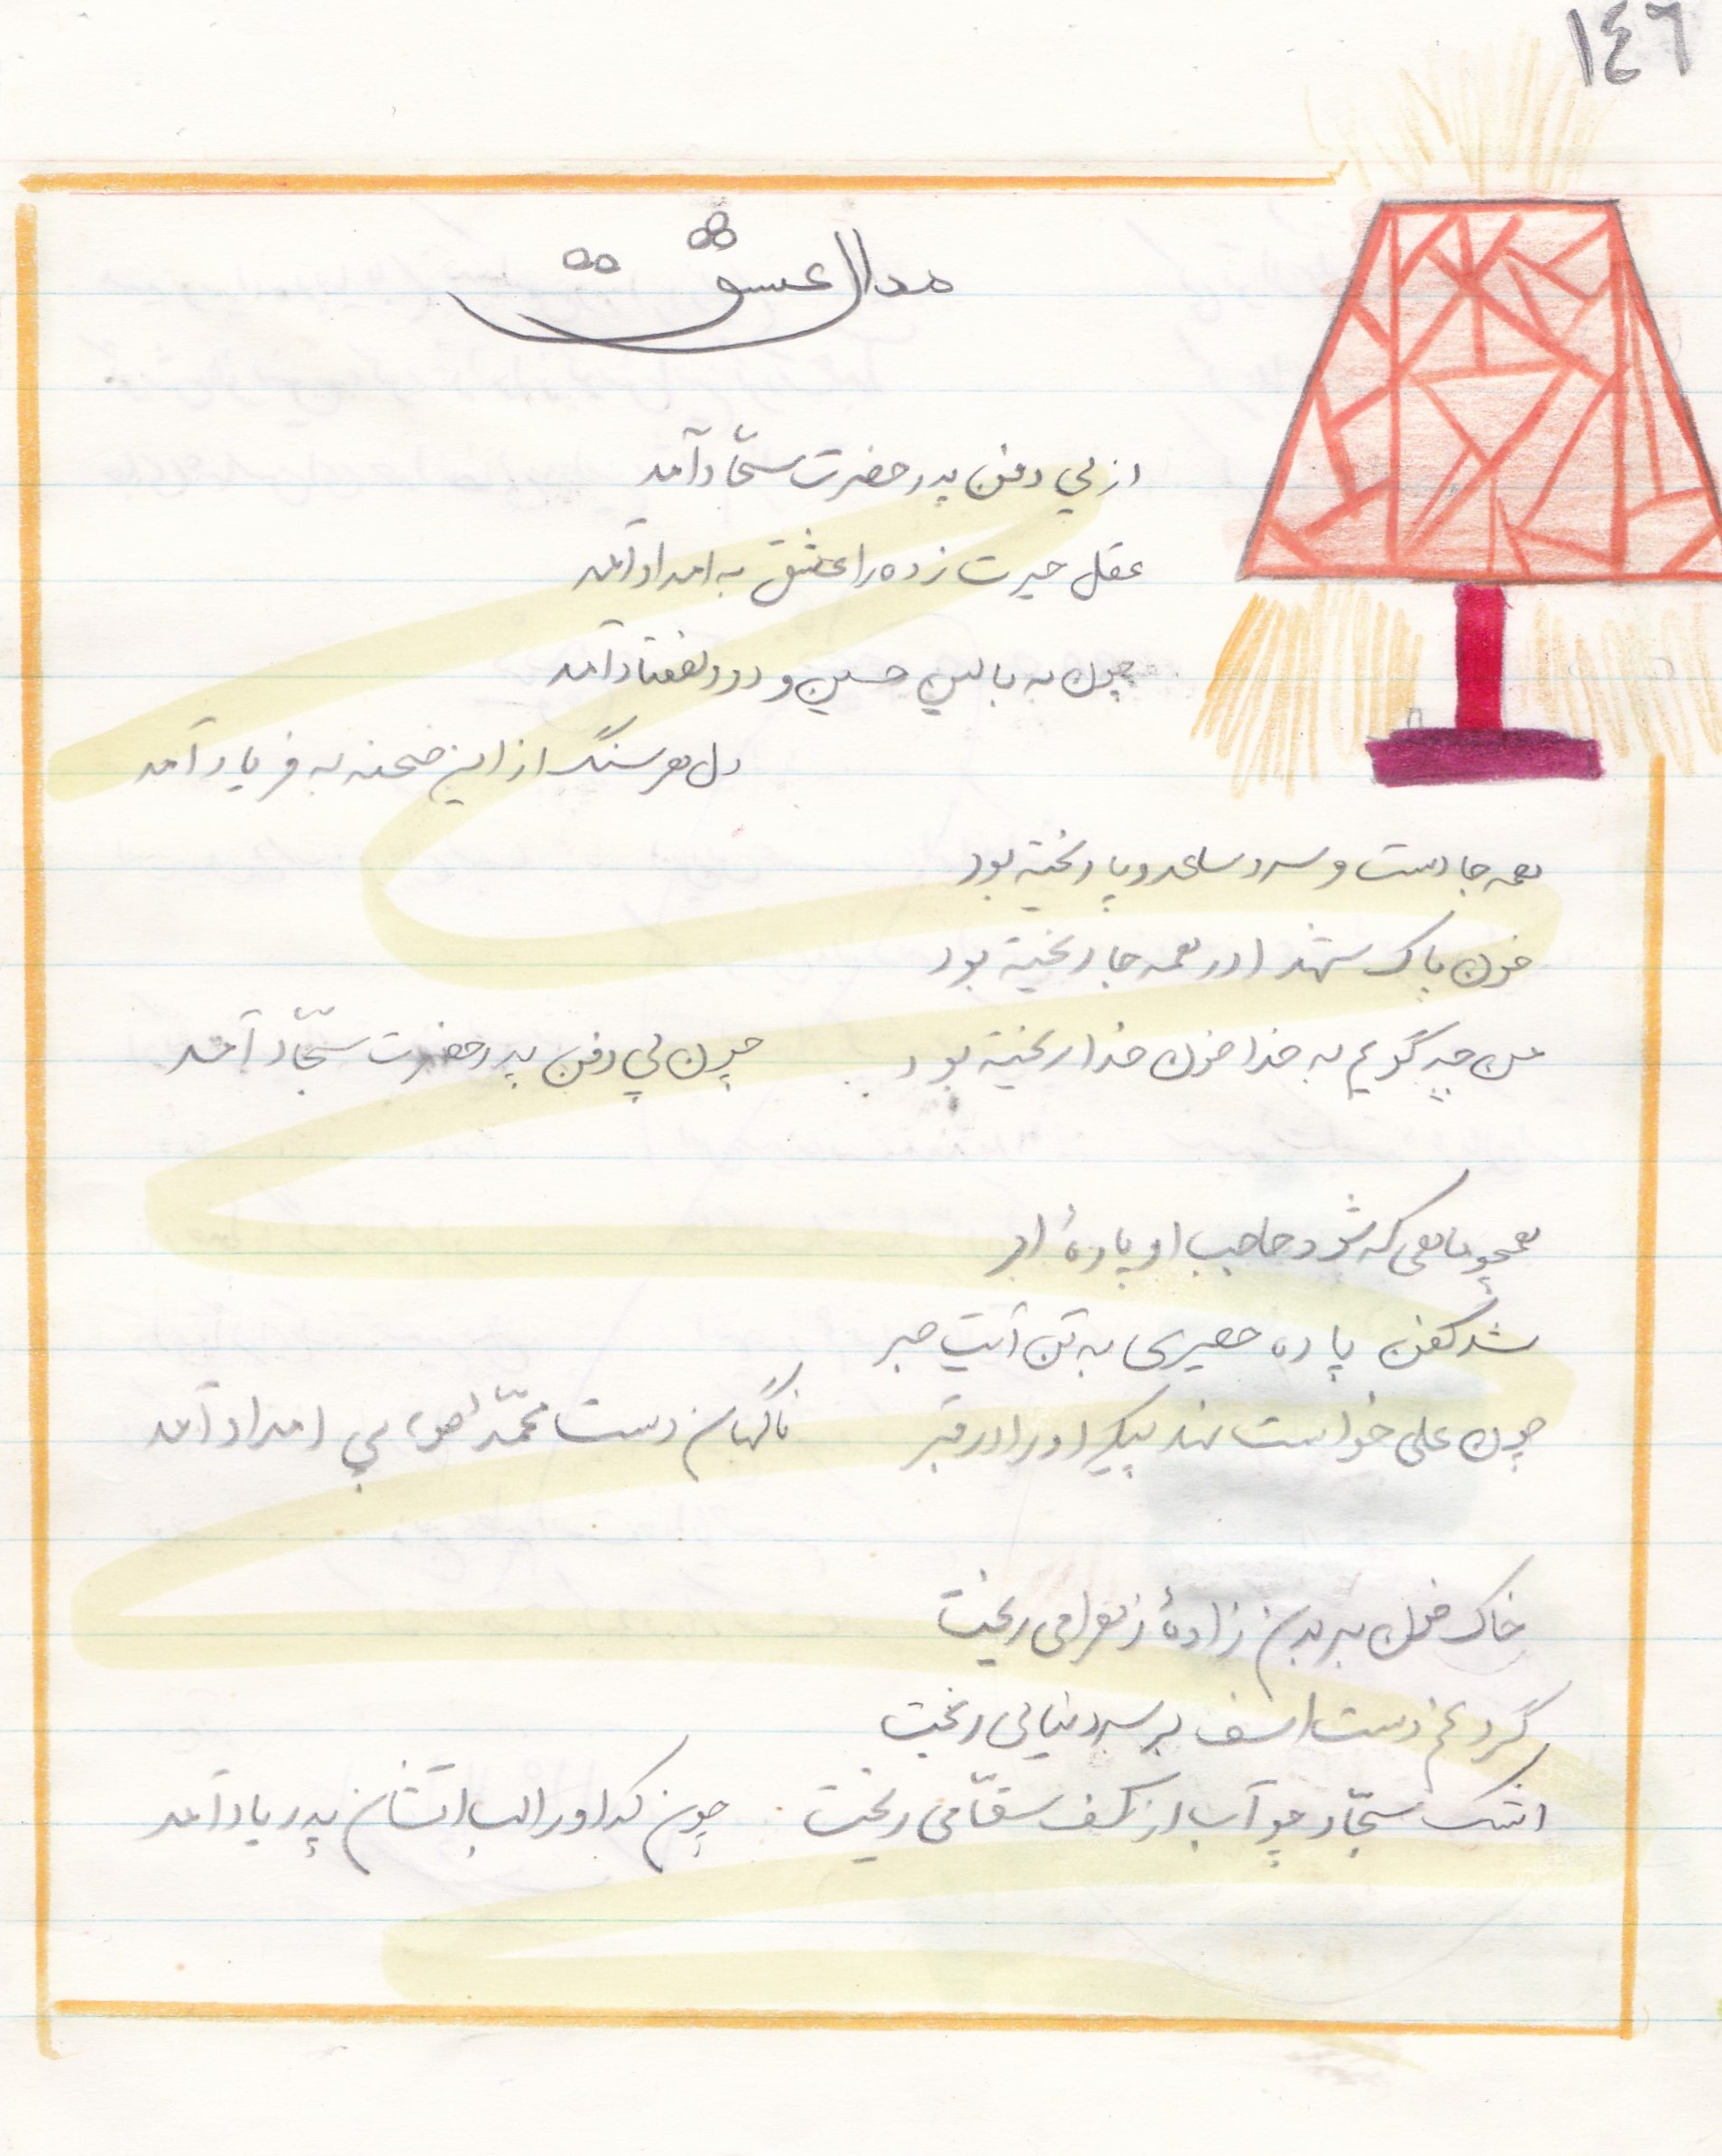 ١٤٦
مدال عشق
از پي دفن پدر حضرت سجّاد آمد
عقل حيرت زده را عشق به امداد آمد
چون به بالين حسين و دو و هفتاد آمد
دل هر سنگ از اين صحنه به فرياد آمد
همه جا دست و سر و ساعد و پا ريخته بود
خون پاک شهدا در همه جا ريخته بود
من چه گويم به خدا خون خدا ريخته بود چون پي دفن پدر حضرت سجّاد آمد
همچو ماهی که شود حاجب او پارهٔ ابر
شد کفن پاره حصيری به تن آيت صبر
چون علی خواست نهد پيکر او را در قبر ناگهان دست محمّد (ص) پي امداد آمد
خاک خون بر بدن زادهٔ زهرا می ريخت
گرد غم دست اسف بر سر دنيا می ريخت
اشک سجّاد چو آب از کف سقّا می ريخت چون که او را لب اتشان پدر ياد آمد